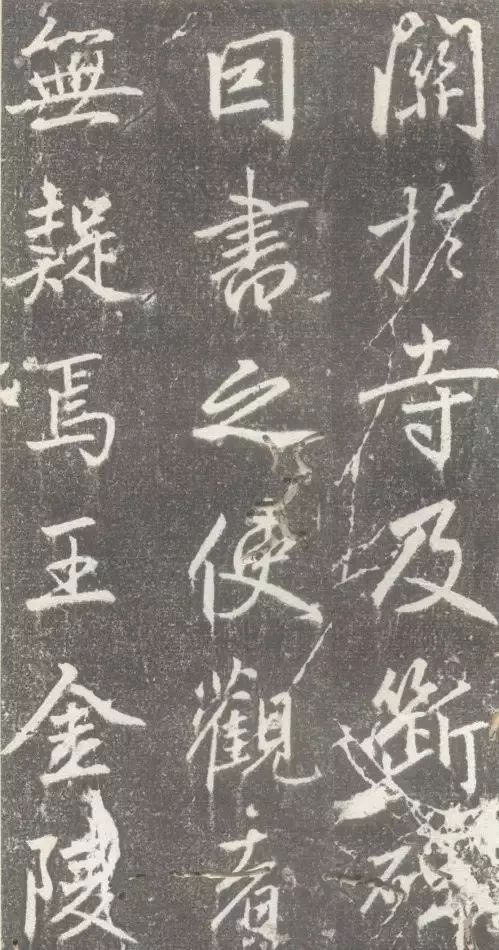 關於寺及
因書之使觀者
無疑焉王金陵